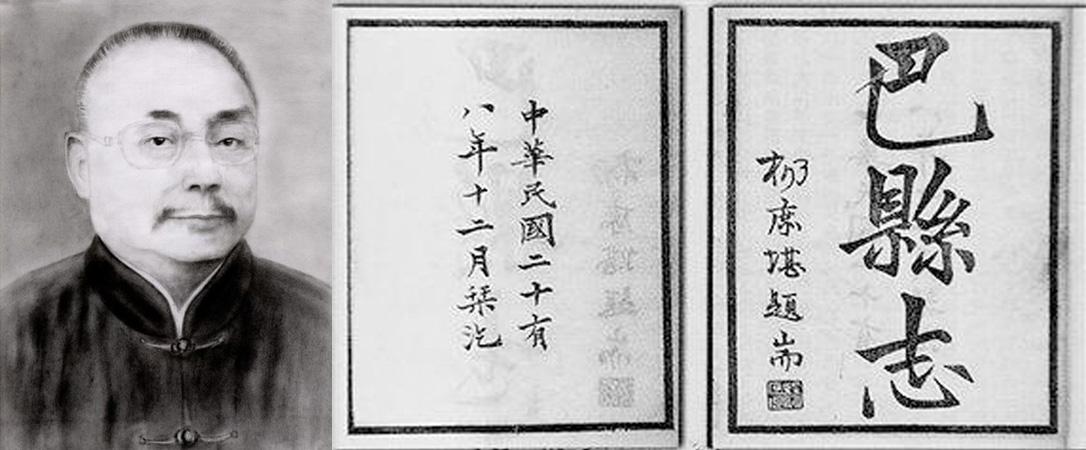 巴縣志
杨庶堪題耑
中華民國二十有
八年十二月栞汔